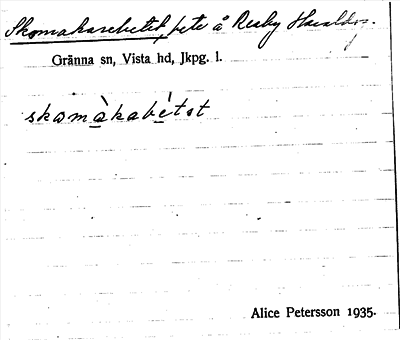 Skomakarebetet, bete å Reaby Haralds
Gränna sn, Vista hd, Jkpg. l.
skomàkabétet
Alice Petersson 1935.